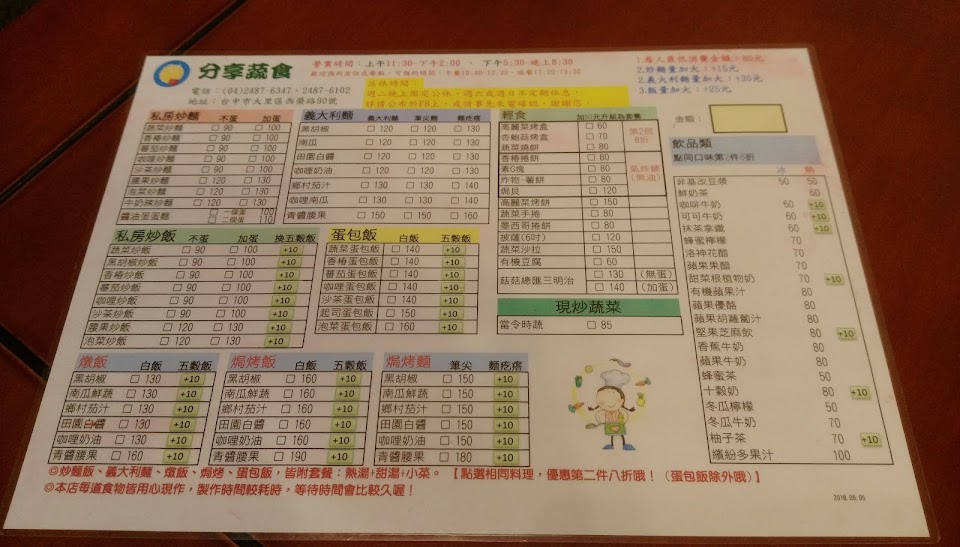 分享蔬食
電話：(04)2487-6347、2487-6102
地址：台中市大里區西榮路90號
營業時間：上午11:30-下午2:00 、 下午5:30-晚上8:30
店休時間：
週二晚上固定公休，週六或週日不定期休息，
詳情公布於FB上，或請事先來電確認，謝謝您！
1.每人最低消費金額：80元
2.炒麵量加大：+15元
2.義大利麵量加大：+30元
3.飯量加大：+25元
金額：
私房炒麵 不蛋 加蛋
蔬菜炒麵 □ 90 □ 100
香椿炒麵 □ 90 □ 100
蕃茄炒麵 □ 90 □ 100
咖哩炒麵 □ 90 □ 100
沙茶炒麵 □ 90 □ 100
腰果炒麵 □ 120 □ 130
泡菜炒麵 □ 120 □ 130
牛奶辣炒麵 □ 120 □ 130
醬油蛋蛋麵 □ 一個蛋 100
□ 二個蛋 110
義大利麵 義大利麵 筆尖麵 麵疙瘩
黑胡椒 □ 120 □ 120 □ 130
南瓜 □ 120 □ 120 □ 130
田園白醬 □ 120 □ 120 □ 130
咖哩奶油 □ 120 □ 120 □ 130
鄉村茄汁 □ 130 □ 130 □ 140
咖哩南瓜 □ 130 □ 130 □ 140
青醬腰果 □ 150 □ 150 □ 160
輕食 加50元升級為套餐
高麗菜烤盒 □ 60
杏鮑菇烤盒 □ 70
蔬菜燒餅 □ 80
第2個
8折
香椿捲餅 □ 80
素G塊 □ 80
炸物-薯餅 □ 80
焗貝 □ 120
氣炸鍋
(無油)
高麗菜烤餅 □ 150
蔬菜手捲 □ 80
墨西哥捲餅 □ 80
披薩(6吋) □ 120
蔬菜沙拉 □ 150
有機豆腐 □ 60
菇菇總匯三明治 □ 130 (無蛋)
□ 140 (加蛋)
現炒蔬菜
當令時蔬 □ 85
飲品類
點同口味第2件6折
冰 熱
非基改豆漿 50 50
鮮奶茶 60
咖啡牛奶 60 +10
可可牛奶 60 +10
抹茶拿鐵 60 +10
蜂蜜檸檬 70
洛神花醋 70
蘋果果醋 70
甜菜根植物奶 70 +10
有機蘋果汁 80
蘋果優酪 80
蘋果胡蘿蔔汁 80
堅果芝麻飲 80 +10
香蕉牛奶 80
蘋果牛奶 80
蜂蜜茶 50
十穀奶 80 +10
冬瓜檸檬 50
冬瓜牛奶 70
柚子茶 70 +10
繽紛多果汁 100
私房炒飯 不蛋 加蛋 換五穀飯
蔬菜炒飯 □ 90 □ 100 +10
黑胡椒炒飯 □ 90 □ 100 +10
香椿炒飯 □ 90 □ 100 +10
蕃茄炒飯 □ 90 □ 100 +10
咖哩炒飯 □ 90 □ 100 +10
沙茶炒飯 □ 90 □ 100 +10
腰果炒飯 □ 120 □ 130 +10
泡菜炒飯 □ 120 □ 130 +10
蛋包飯 白飯 五穀飯
蔬菜蛋包飯 □ 140 +10
香椿蛋包飯 □ 140 +10
蕃茄蛋包飯 □ 140 +10
咖哩蛋包飯 □ 140 +10
沙茶蛋包飯 □ 140 +10
起司蛋包飯 □ 150 +10
泡菜蛋包飯 □ 160 +10
燉飯 白飯 五穀飯
黑胡椒 □ 130 +10
南瓜鮮蔬 □ 130 +10
鄉村茄汁 □ 130 +10
田園白醬 □ 130 +10
咖哩奶油 □ 130 +10
青醬腰果 □ 160 +10
焗烤飯 白飯 五穀飯
黑胡椒 □ 160 +10
南瓜鮮蔬 □ 160 +10
鄉村茄汁 □ 160 +10
田園白醬 □ 160 +10
咖哩奶油 □ 160 +10
青醬腰果 □ 190 +10
焗烤麵 筆尖 麵疙瘩
黑胡椒 □ 150 +10
南瓜鮮蔬 □ 150 +10
鄉村茄汁 □ 150 +10
田園白醬 □ 150 +10
咖哩奶油 □ 150 +10
青醬腰果 □ 180 +10
◎炒麵飯、義大利麵、燉飯、焗烤、蛋包飯，皆附套餐：熱湯+甜湯+小菜。【點選相同料理，優惠第二件八折哦！（蛋包飯除外哦）】
◎本店每道食物皆用心現作，製作時間較耗時，等待時間會比較久喔！
2018.06.05